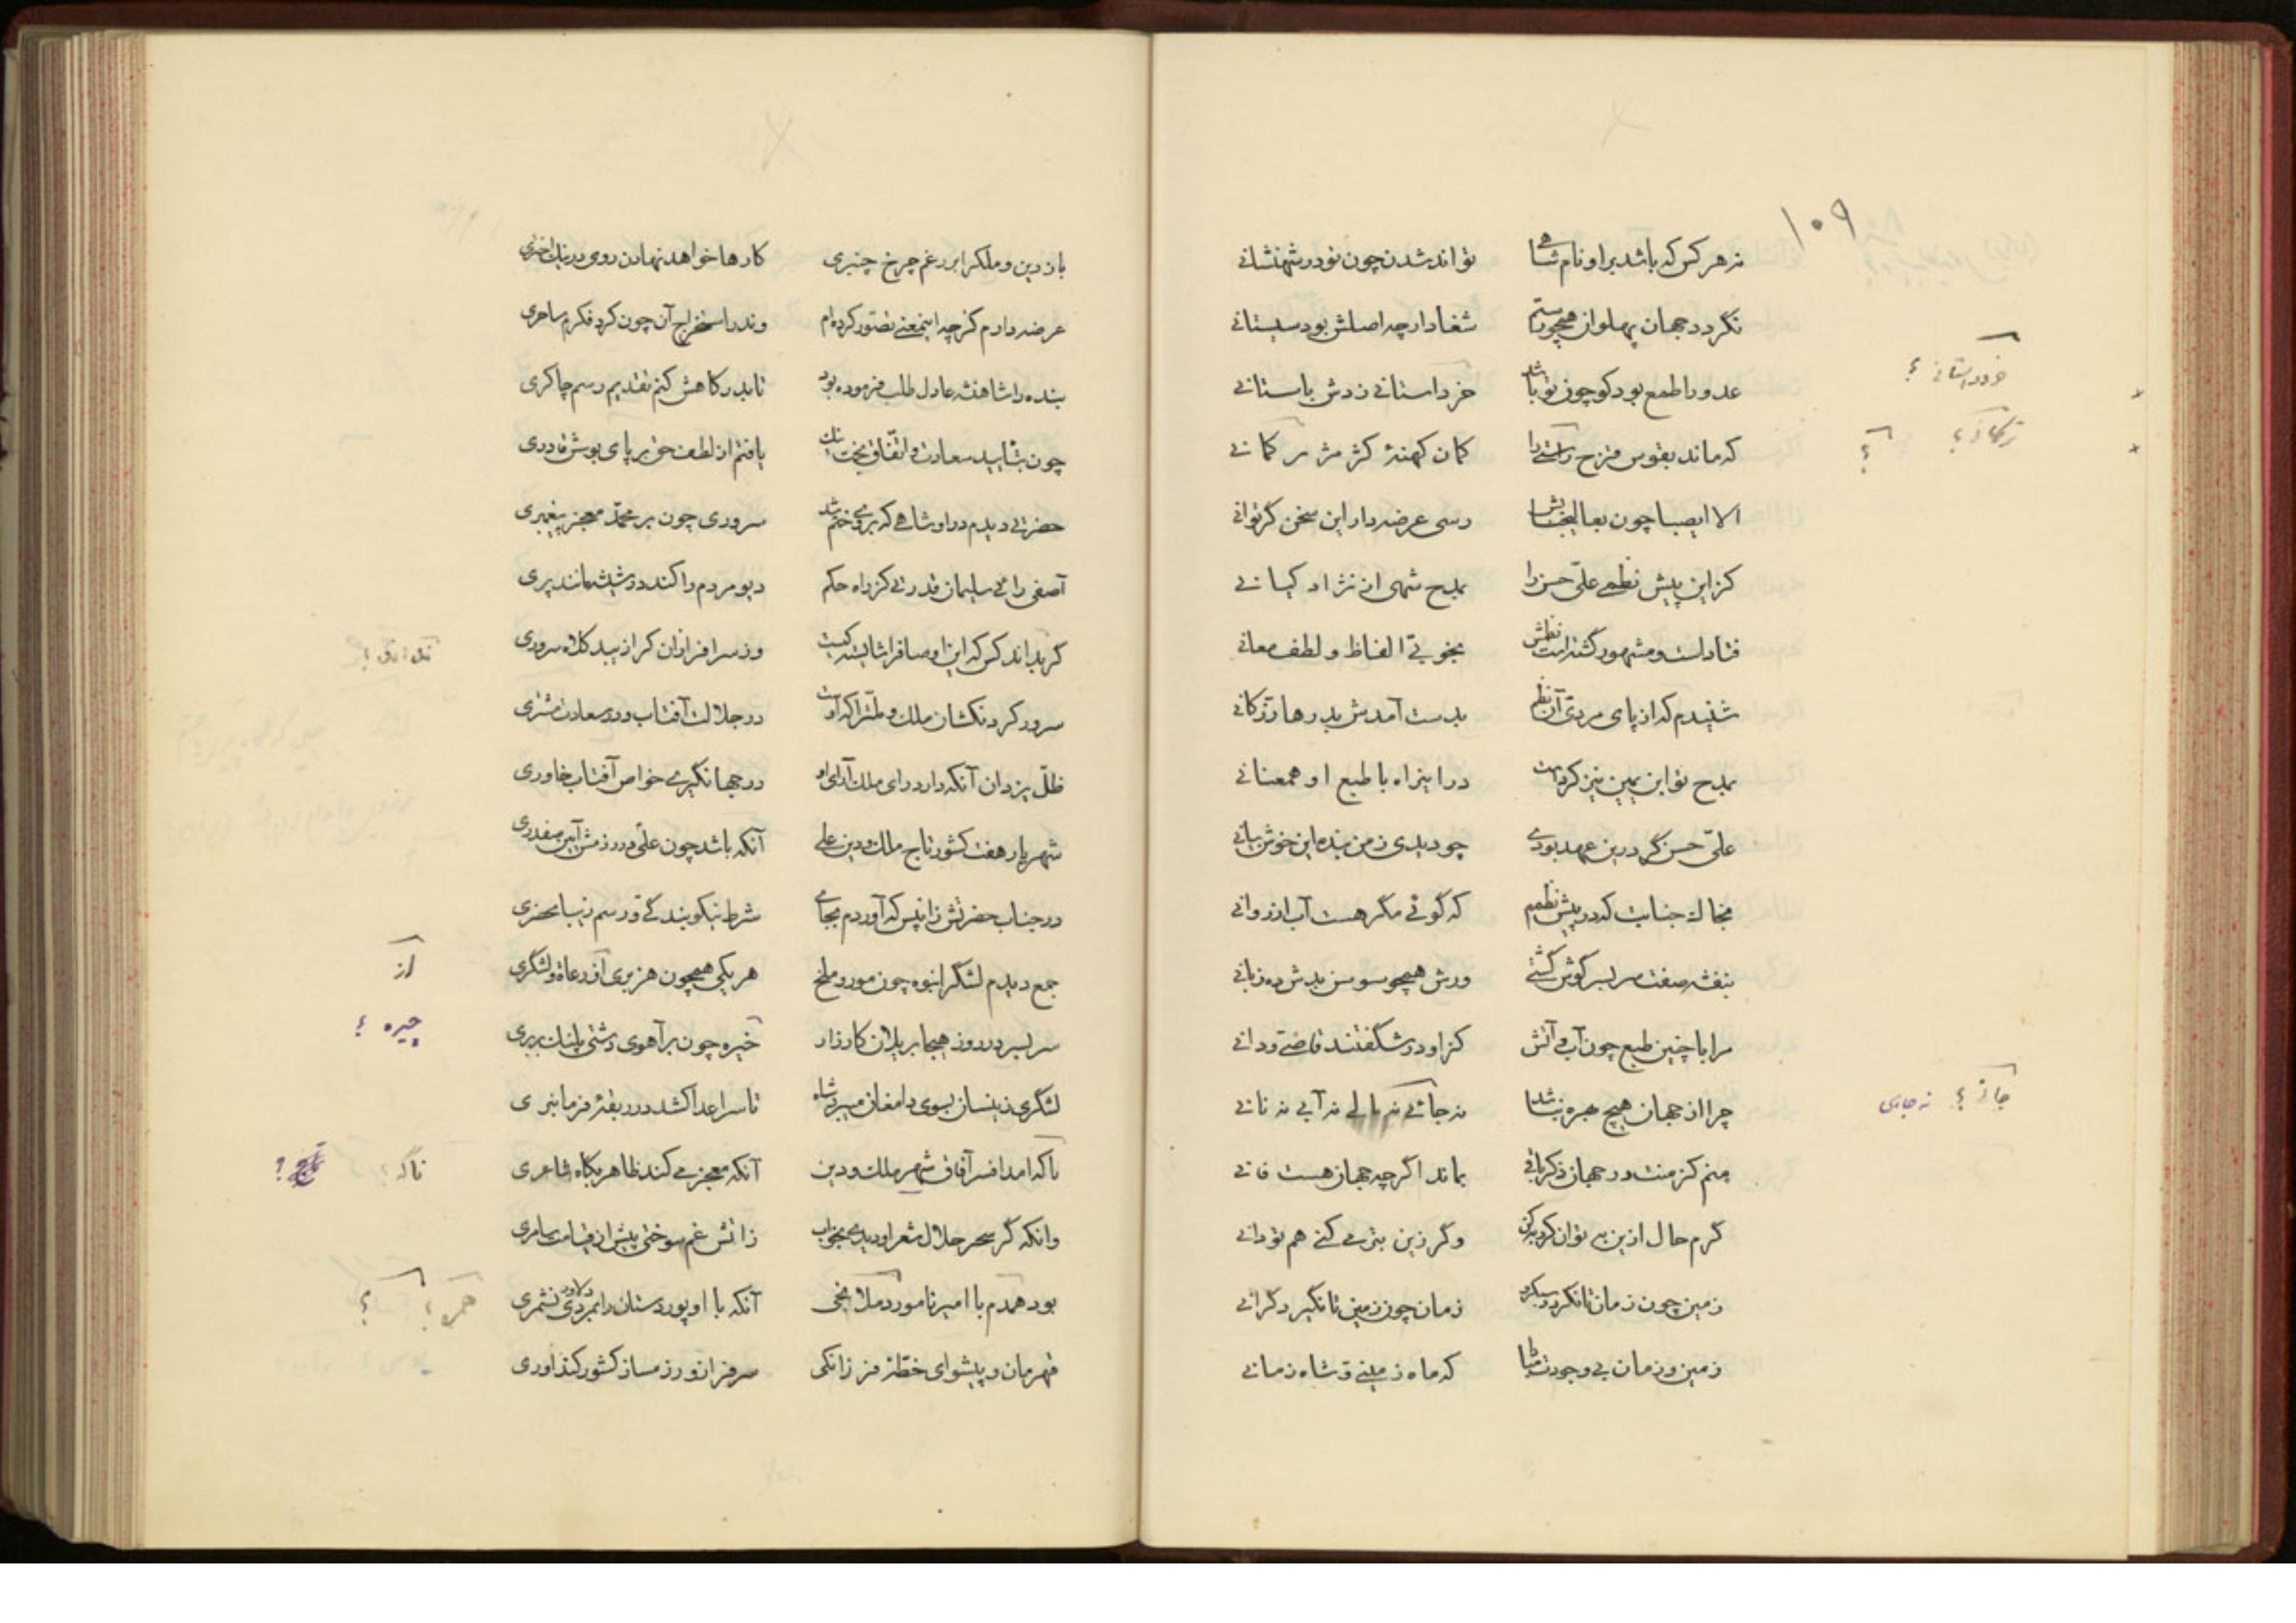 ۱۰۹
نه هر کس که باشد بر او نام شاهی تواند شدن چون تو در شهنشانی
نگردد جهان پهلوان همچو رستم شغاد ار چه اصلش بود سیستانی
خرد داستانی ؟
عدو را طمع بود کو چون تو باشد خرد استانی زدش باستانی
که ماند بقوس قزح راستی را کمان کهنهٔ کژ مژ کمانی
؟
الا ای صبا چون بعالیجنابش رسی عرضه دار این سخن گر توانی
کز این پیش نظمی علی حسن را بمدح شهی از نژاد کیانی
فتادست و مشهور گشتست نظمش بخوبی الفاظ و لطف معانی
شنیدم که از پای مردی آن نظم بدست آمدش بدرها رزکانی
بمدح تو ابن یمین نیز کردست در اینراه با طبع او همعنانی
علی حسن گر درین عهد بودی چو دیدی ز من بنده این خوش بیانی
بخاک جنابت که در پیش نظمم که گوئی مگر هست آب از روانی
بنفشه صفت سر بسر گوش گشتی ورش همچو سوسن بدش ده زبانی
مرا با چنین طبع چون آب و آتش کز او در شگفتند قاصی و دانی
چرا از جهان هیچ بهره نباشد نه جائی نه مالی نه آبی نه نانی
جائی ؟ نه جامی
منم کز منت در جهان ذکر باقی بماند اگر چه جهان هست فانی
گرم حال ازین به توان کرد به کن وگر زین بتر می کنی هم تو دانی
زمین چون زمان تا نگردد سبکرو زمان چون زمین تا نگیرد گرانی
زمین و زمان بی وجودت مبادا که ماه زمینی و شاه زمانی
باز دین و ملک را بر رغم چرخ چنبری کارها خواهد نهادن روی در نیک اختری
عرضه دارم کز چه اینمعنی تصور کرده ام وندر استخراج آن چون کرد فکرم ساحری
بنده را شاهنشه عادل طلب فرموده بود تا بدرگاهش کنم تقدیم رسم چاکری
چون بتأیید سعادت و اتفاق بخت نیک یافتم از لطف حق بر پای بوسش قادری
حضرتی دیدم در او شاهی که بر وی ختم شد سروری چون بر محمد معجز پیغمبری
آصفی رائی سلیمان قدرتی کز راه حکم دیو مردم را کند در شیشه مانند پری
گر بداند کس که این اوصاف را شایسته کیست وز سرافرازان کرا زیبد کلاه سروری
سرور گردنکشان ملک و ملت را که اوست در جلالت آفتاب و در سعادت مشتری
ظل یزدان آنکه دارد رای ملک آرای او در جهانگیری خواص آفتاب خاوری
شهریار هفت کشور تاج ملک و دین علی آنکه باشد چون علی در رزمش آیین صفدری
در جناب حضرتش زانپس که آوردم بجای شرط نیکو بندگی و رسم زیبا محضری
جمع دیدم لشگر انبوه چون مور و ملخ هر یکی همچون هزبری از دعاة لشگری
از
سر بسر در روز هیجا بر یلان کارزار خیره چون بر آهوی دشتی پلنگ بربری
چیره ؟
لشگری زینسان بسوی دامغان میبرد شاه تا سر اعدا کشد در ربقهٔ فرمانبری
ناگه امد افسر آفاق شهر ملک و دین آنکه معجز می کند ظاهر بگاه شاعری
ناگه ؟ تاج ؟
وانکه گر سحر حلال شعر او دیدی بخواب زاتش غم سوختی پیش از قیامت سامری
بود همدم با امیر نامور آنکه با او پور دستان را بمردی نشمری
؟
قهرمان و پیشوای خطهٔ فرزانگی سرفراز و رزمساز کشور کنداوری